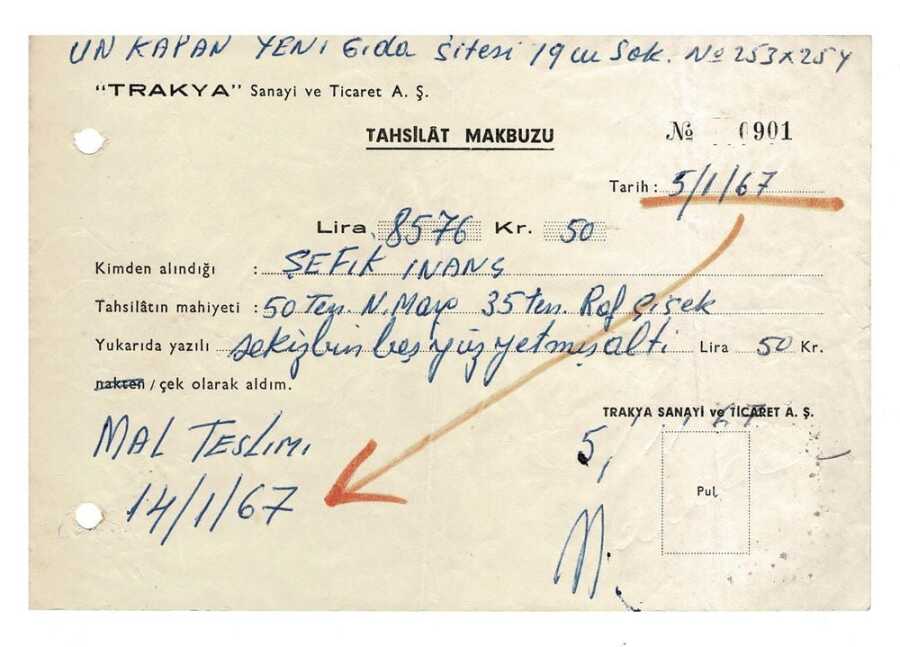 UN KAPAN YENİ Gıda Sitesi 19 cu Sok. No 253x254
"TRAKYA" Sanayi ve Ticaret A. Ş.
TAHSİLÂT MAKBUZU
№ 0901
Tarih : 5/1/67
Lira 8576 Kr. 50
Kimden alındığı : ŞEFİK INANÇ
Tahsilâtın mahiyeti : 50 Ten. N. 35 ten. Raf Çiçek
Yukarıda yazılı sekizbin beş yüz yetmişaltı Lira 50 Kr.
nakten / çek olarak aldım.
TRAKYA SANAYİ ve TİCARET A. Ş.
MAL TESLIMI
14/1/67
Pul